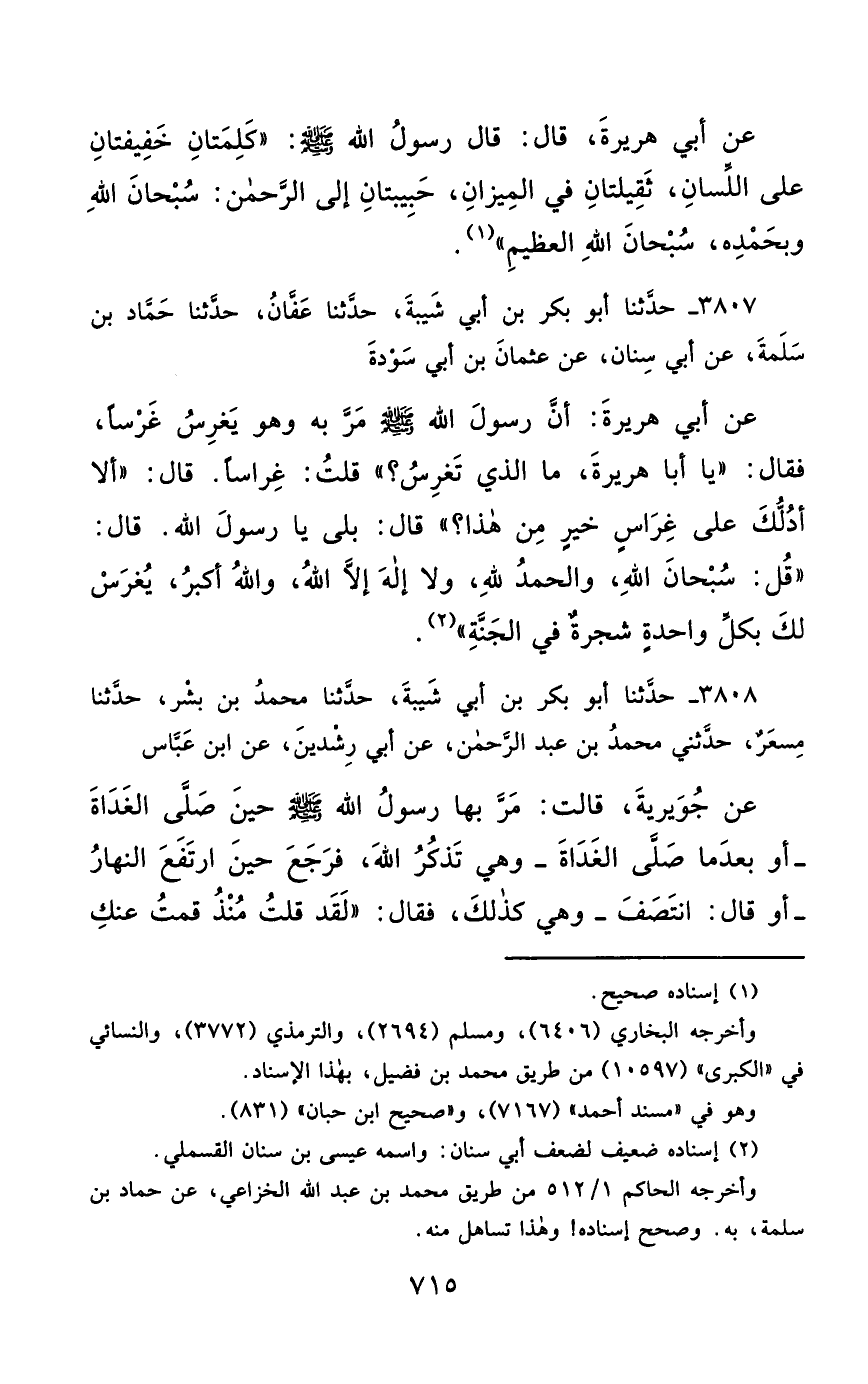 عن أبي هريرةَ، قال: قال رسولُ الله ﷺ: «كَلِمَتانِ خَفِيفتانِ
على اللِّسانِ، ثَقِيلتانِ في المِيزانِ، حَبِيبتانِ إلى الرَّحمٰن: سُبْحانَ اللهِ
وبحَمْدِه، سُبْحانَ اللهِ العظيمِ»(١).
٣٨٠٧ـ حدَّثنا أبو بكر بن أبي شَيبةَ، حدَّثنا عَفَّانُ، حدَّثنا حَمَّاد بن
سَلَمةَ، عن أبي سِنان، عن عثمانَ بن أبي سَوْدةَ
عن أبي هريرةَ: أنَّ رسولَ الله ﷺ مَرَّ به وهو يَغرِسُ غَرْساً،
فقال: «يا أبا هريرةَ، ما الذي تَغرِسُ؟» قلتُ: غِراساً. قال: «ألا
أدُلُّكَ على غِرَاسٍ خيرٍ مِن هٰذا؟» قال: بلى يا رسولَ الله. قال:
«قُل: سُبْحانَ اللهِ، والحمدُ للهِ، ولا إلٰهَ إلاَّ اللهُ، واللهُ أكبرُ، يُغرَسْ
لكَ بكلِّ واحدةٍ شجرةٌ في الجَنَّةِ»(٢).
٣٨٠٨ـ حدَّثنا أبو بكر بن أبي شَيبةَ، حدَّثنا محمدُ بن بشْر، حدَّثنا
مِسعَرٌ، حدَّثني محمدُ بن عبد الرَّحمٰن، عن أبي رِشْدينَ، عن ابن عَبَّاس
عن جُوَيريةَ، قالت: مَرَّ بها رسولُ الله ﷺ حينَ صَلَّى الغَدَاةَ
ـ أو بعدَما صَلَّى الغَدَاةَ ـ وهي تَذكُرُ اللهَ، فرَجَعَ حينَ ارتَفَعَ النهارُ
ـ أو قال: انتَصَفَ ـ وهي كذٰلكَ، فقال: «لَقَد قلتُ مُنْذُ قمتُ عنكِ
(١) إسناده صحيح.
وأخرجه البخاري (٦٤٠٦)، ومسلم (٢٦٩٤)، والترمذي (٣٧٧٢)، والنسائي
في «الكبرى» (١٠٥٩٧) من طريق محمد بن فضيل، بهٰذا الإسناد.
وهو في «مسند أحمد» (٧١٦٧)، و«صحيح ابن حبان» (٨٣١).
(٢) إسناده ضعيف لضعف أبي سنان: واسمه عيسى بن سنان القسملي.
وأخرجه الحاكم ١/‏٥١٢ من طريق محمد بن عبد الله الخزاعي، عن حماد بن
سلمة، به. وصحح إسناده! وهٰذا تساهل منه.
٧١٥